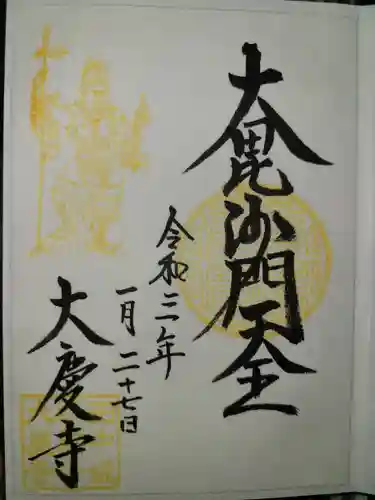 大毘沙門天王
令和三年
一月二十七日
大慶寺